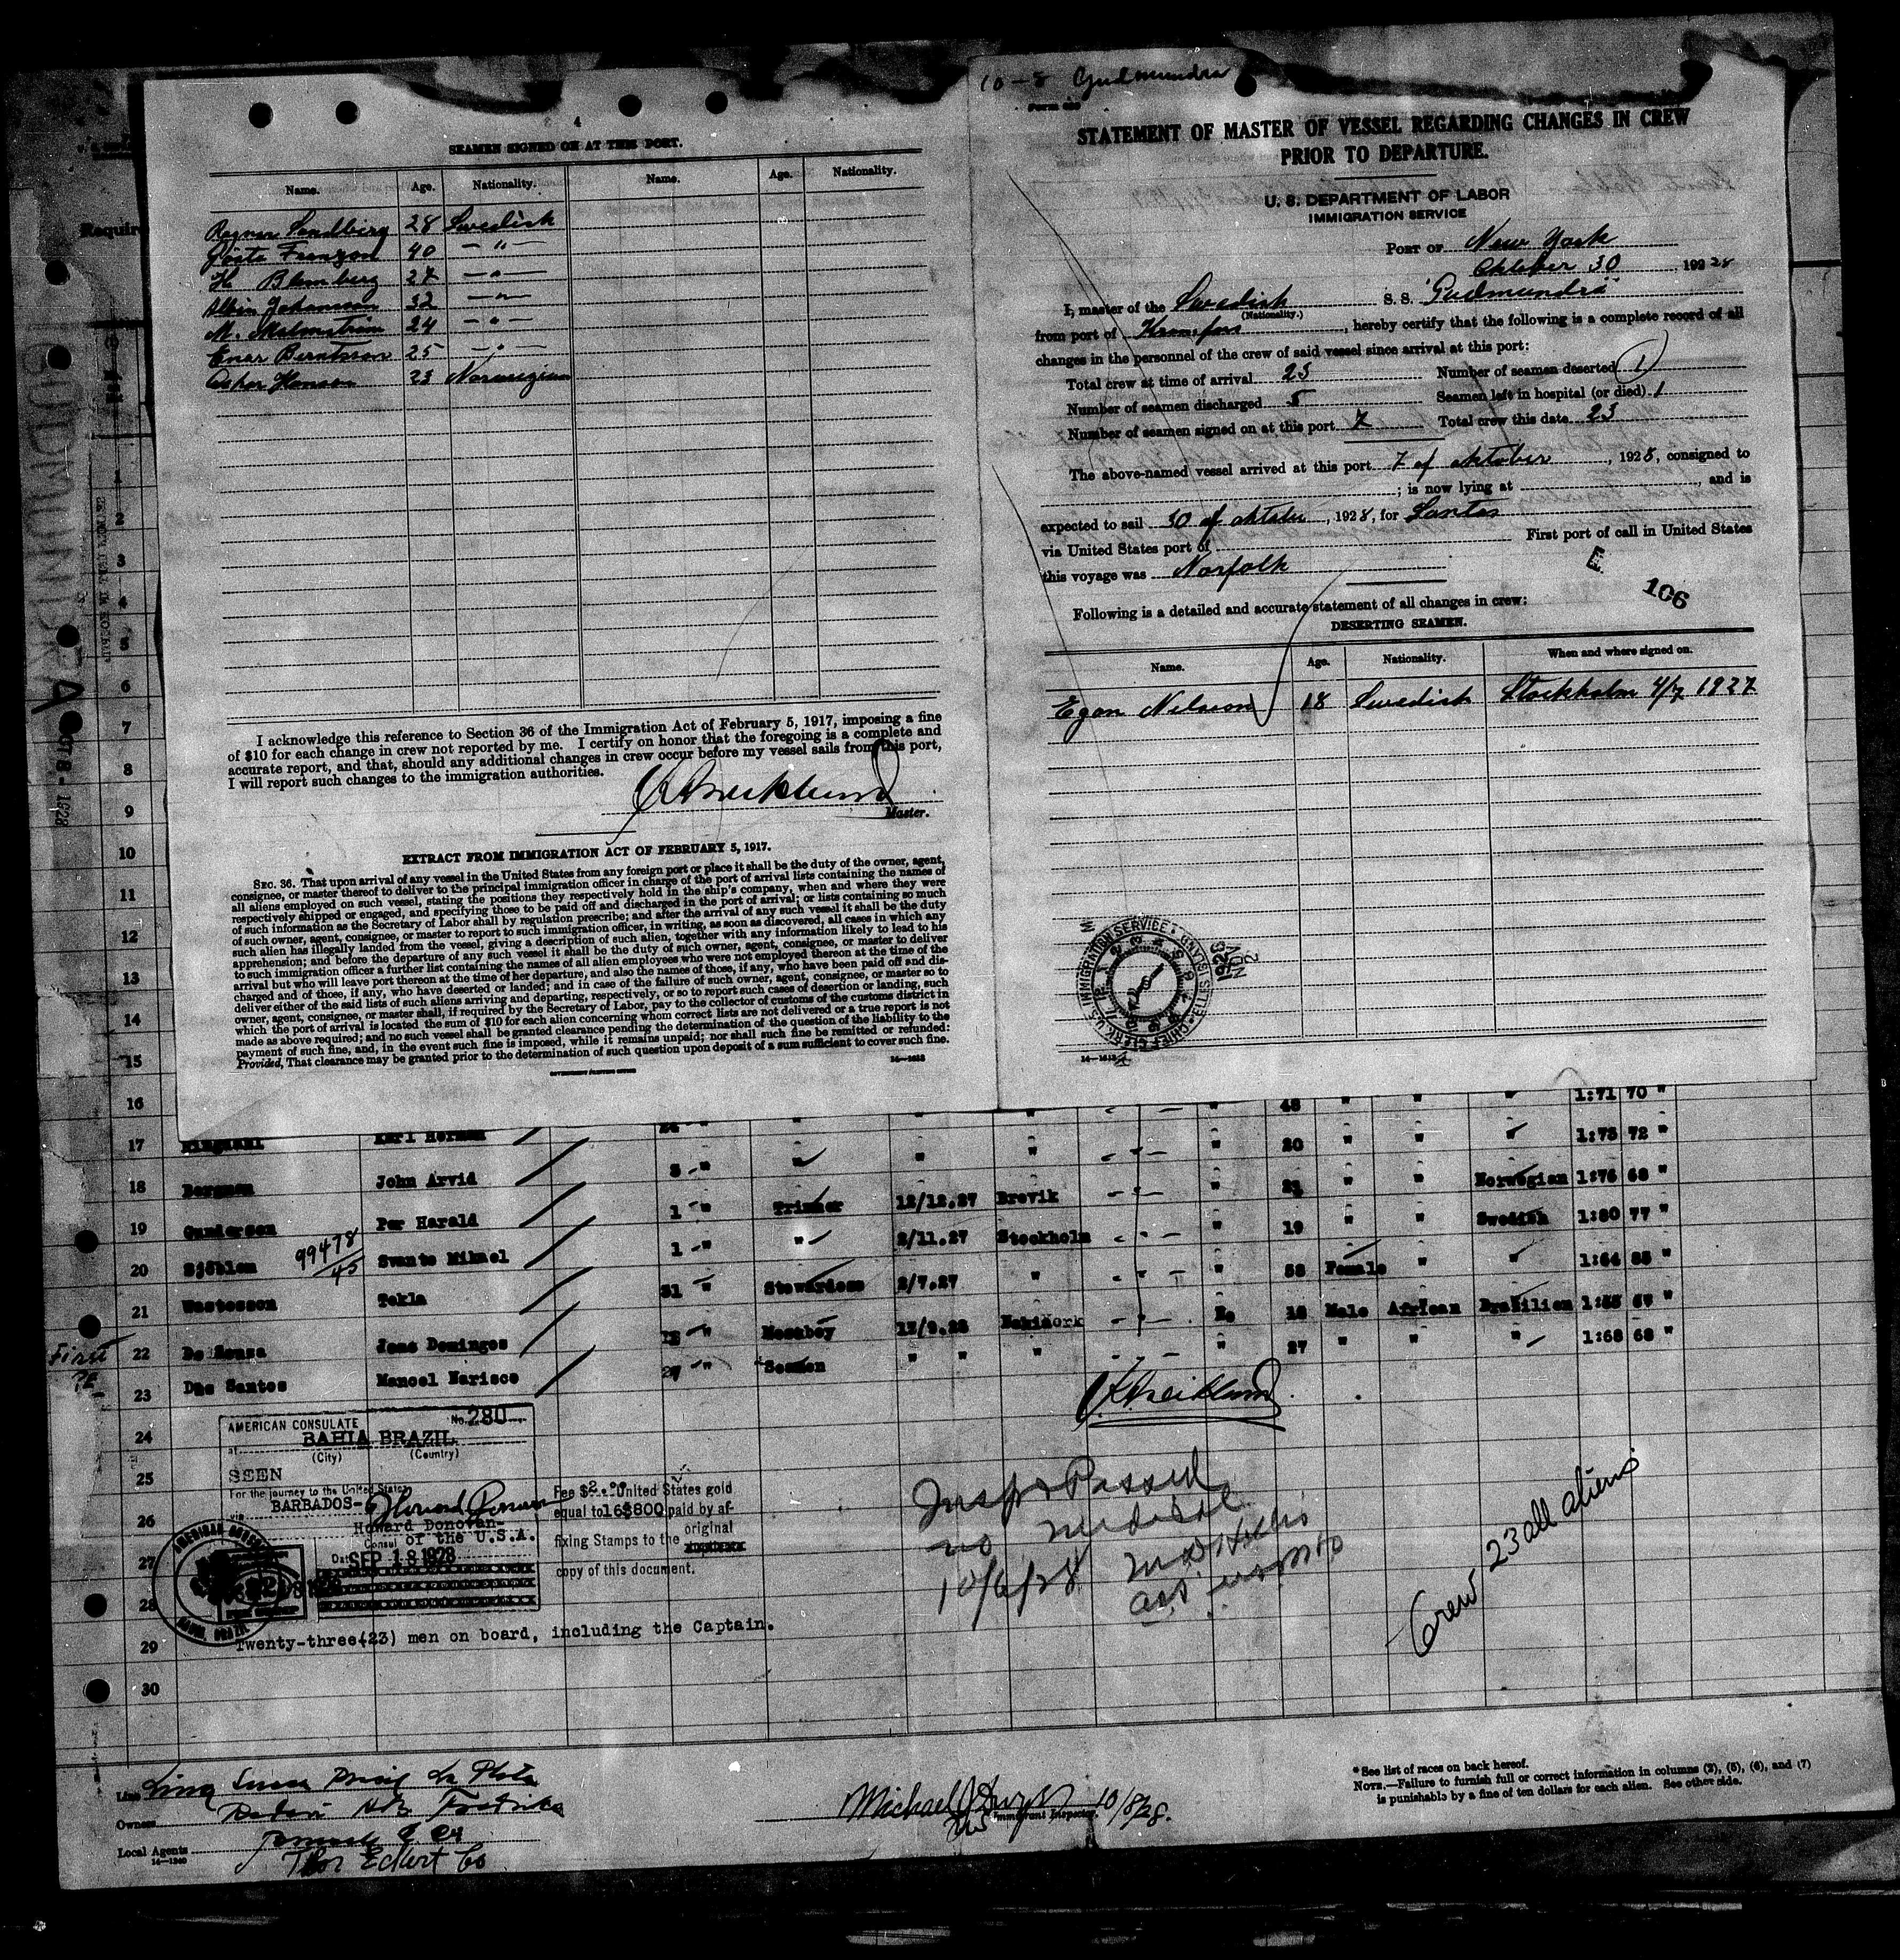 4
SEAMEN SIGNED ON AT THIS PORT.
Name. Age. Nationality. Name. Age. Nationality.
Ragnar Sandberg 28 Swedish
Gösta Franzon 40 — " —
H. Blomberg 27 — " —
Albin Johansson 32 — " —
M. Malmström 24 — " —
Enar Berntsson 25 — " —
Oskar Hansen 23 Norwegian
I acknowledge this reference to Section 36 of the Immigration Act of February 5, 1917, imposing a fine
of $10 for each change in crew not reported by me. I certify on honor that the foregoing is a complete and
accurate report, and that, should any additional changes in crew occur before my vessel sails from this port,
I will report such changes to the immigration authorities.
Master.
EXTRACT FROM IMMIGRATION ACT OF FEBRUARY 5, 1917.
SEC. 36. That upon arrival of any vessel in the United States from any foreign port or place it shall be the duty of the owner, agent,
consignee, or master thereof to deliver to the principal immigration officer in charge of the port of arrival lists containing the names of
all aliens employed on such vessel, stating the positions they respectively hold in the ship's company, when and where they were
respectively shipped or engaged, and specifying those to be paid off and discharged in the port of arrival; or lists containing so much
of such information as the Secretary of Labor shall by regulation prescribe; and after the arrival of any such vessel it shall be the duty
of such owner, agent, consignee, or master to report to such immigration officer, in writing, as soon as discovered, all cases in which any
such alien has illegally landed from the vessel, giving a description of such alien, together with any information likely to lead to his
apprehension; and before the departure of any such vessel it shall be the duty of such owner, agent, consignee, or master to deliver
to such immigration officer a further list containing the names of all alien employees who were not employed thereon at the time of the
arrival but who will leave port thereon at the time of her departure, and also the names of those, if any, who have been paid off and dis-
charged and of those, if any, who have deserted or landed; and in case of the failure of such owner, agent, consignee, or master so to
deliver either of the said lists of such aliens arriving and departing, respectively, or so to report such cases of desertion or landing, such
owner, agent, consignee, or master shall, if required by the Secretary of Labor, pay to the collector of customs of the customs district in
which the port of arrival is located the sum of $10 for each alien concerning whom correct lists are not delivered or a true report is not
made as above required; and no such vessel shall be granted clearance pending the determination of the question of the liability to the
payment of such fine, and, in the event such fine is imposed, while it remains unpaid; nor shall such fine be remitted or refunded:
Provided, That clearance may be granted prior to the determination of such question upon deposit of a sum sufficient to cover such fine.
GOVERNMENT PRINTING OFFICE
10-8 Gudmundra
STATEMENT OF MASTER OF VESSEL REGARDING CHANGES IN CREW
PRIOR TO DEPARTURE.
U. S. DEPARTMENT OF LABOR
IMMIGRATION SERVICE
PORT OF New York
Oktober 30, 1928
I, master of the Swedish S. S. Gudmundrá
(Nationality.)
from port of Kramfors, hereby certify that the following is a complete record of all
changes in the personnel of the crew of said vessel since arrival at this port:
Total crew at time of arrival 23 Number of seamen deserted 1
Number of seamen discharged 5 Seamen left in hospital (or died) 1
Number of seamen signed on at this port 7 Total crew this date 23
The above-named vessel arrived at this port 7 of oktober, 1928, consigned to
; is now lying at , and is
expected to sail 30 of oktober, 1928, for Santos
via United States port of First port of call in United States
this voyage was Norfolk
E
106
Following is a detailed and accurate statement of all changes in crew:
DESERTING SEAMEN.
Name. Age. Nationality. When and where signed on.
Egon Nilsson 18 Swedish Stockholm 4/7 1927
U.S. IMMIGRATION SERVICE • ELLIS ISLAND • CHIEF CLERK
1928 NOV 2
GUDMUNDRA
OCT 8 - 1928
1
2
3
4
5
6
7
8
9
10
11
12
13
14
15
16 48 " " " 1:71 70 "
17 Karl Herman " " " " 20 " " " 1:73 72 "
18 Bergman John Arvid 3 " " " " " 21 " " Norwegian 1:76 68 "
19 Gunderson Per Harald 1 " Trimmer 12/12.27 Brevik " 19 " " Swedish 1:80 77 "
20 Sjöblom 99478/45 Svante Mikael 1 " " 2/11.27 Stockholm " 58 Female " " 1:64 85 "
21 Wastesson Tekla 31 " Stewardess 2/7.27 " No 18 Male African Brazilian
22 De Sousa Jose Domingos Messboy " 27 " " " 1:68 68 "
23 Dos Santos Manoel Narisco 27 " Seamen " " "
First
24
25
26
27
28
29
30
AMERICAN CONSULATE No. 280
at BAHIA BRAZIL
(City) (Country)
SEEN
For the journey to the United States
via BARBADOS-
Howard Donovan-
Consul of the U.S.A.
Date SEP 18 1928
Fee $2.00 United States gold
equal to 16$800 paid by af-
fixing Stamps to the original
copy of this document.
Twenty-three(23) men on board, including the Captain.
Insp & Passed
no medical
10/6/28
Crew 23 all aliens
Line
Owners
Local Agents
Thor Eckert Co
Michael J.
Immigrant Inspector. 10/8/28.
* See list of races on back hereof.
NOTE.—Failure to furnish full or correct information in columns (2), (5), (6), and (7)
is punishable by a fine of ten dollars for each alien. See other side.